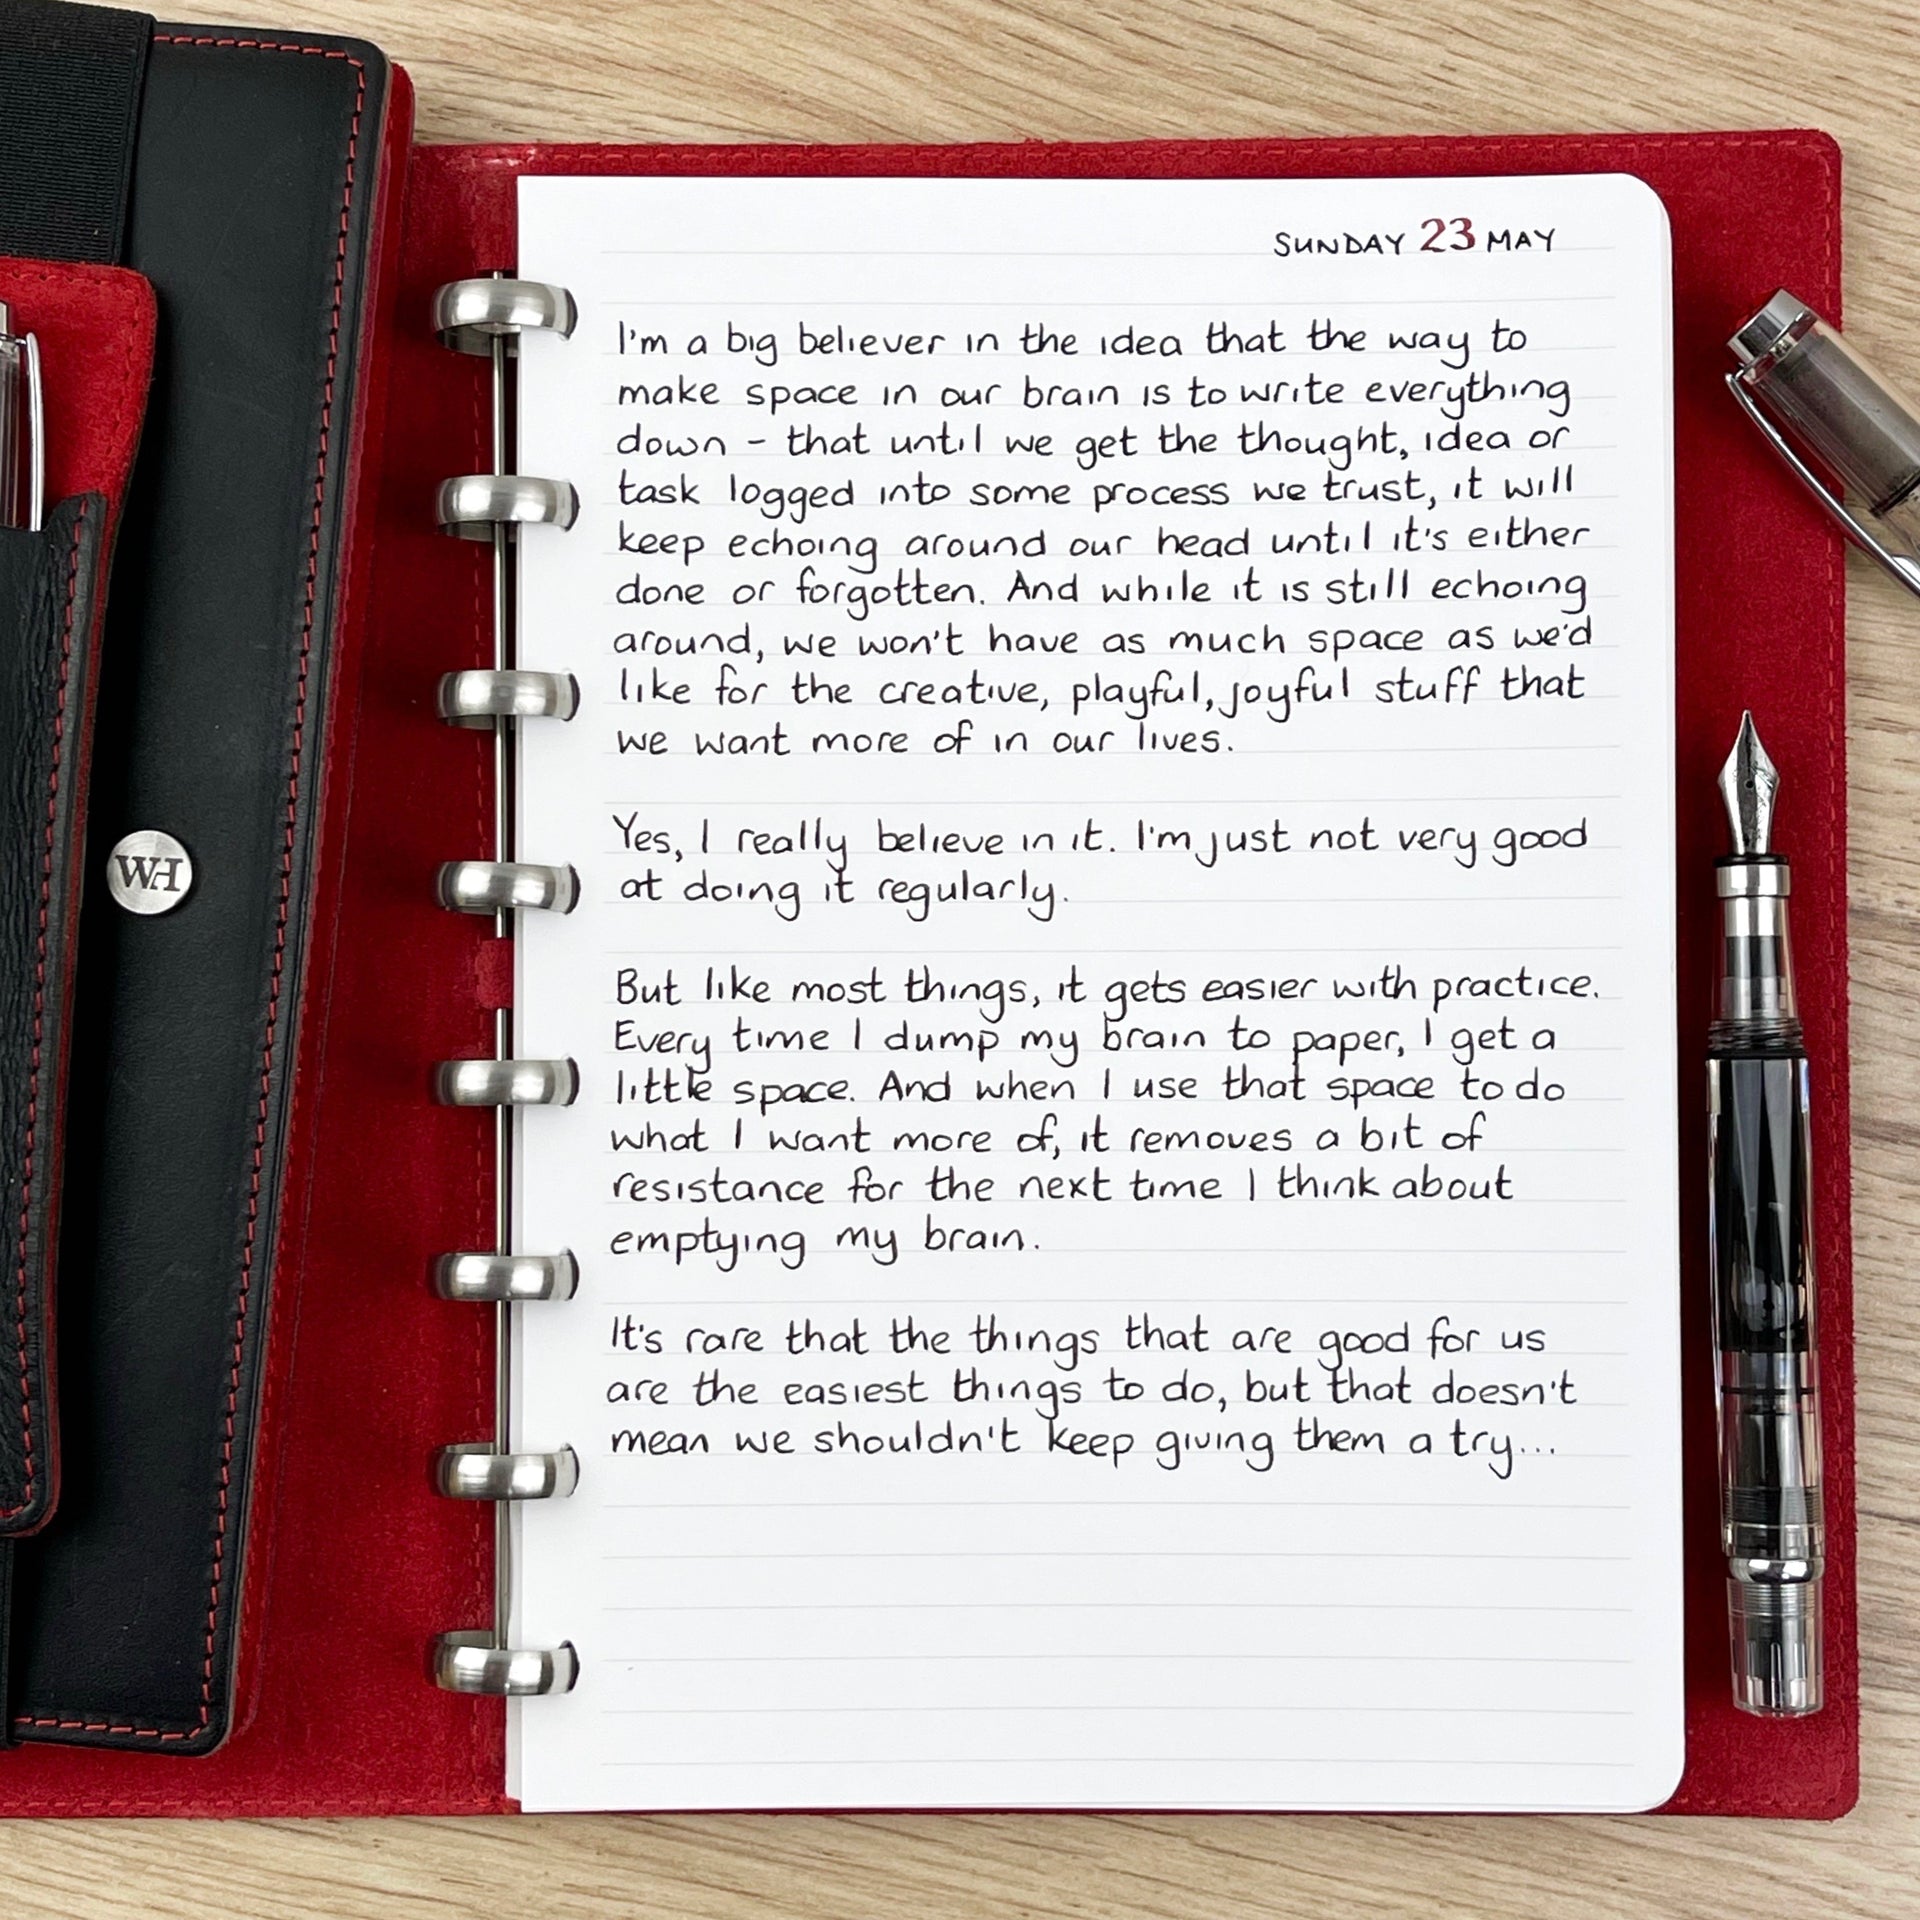 SUNDAY 23 MAY
I'm a big believer in the idea that the way to
make space in our brain is to write everything
down - that until we get the thought, idea or
task logged into some process we trust, it will
keep echoing around our head until it's either
done or forgotten. And while it is still echoing
around, we won't have as much space as we'd
like for the creative, playful, joyful stuff that
we want more of in our lives.
Yes, I really believe in it. I'm just not very good
at doing it regularly.
But like most things, it gets easier with practice.
Every time I dump my brain to paper, I get a
little space. And when I use that space to do
what I want more of, it removes a bit of
resistance for the next time I think about
emptying my brain.
It's rare that the things that are good for us
are the easiest things to do, but that doesn't
mean we shouldn't keep giving them a try...
WH